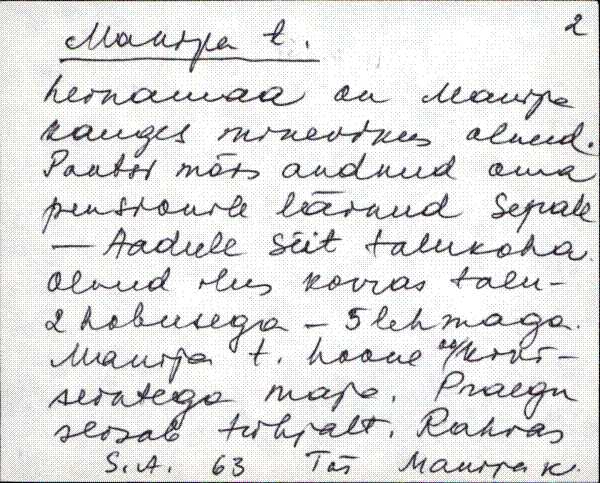 2
Maurja t.
heinamaa on Maurja
kauges minevikus olnud.
Pootsi mõis andnud oma
pensionile läinud Sepale
– Aadule siit talukoha.
Olnud ilus korras talu –
2 hobusega – 5 lehmaga.
Maurja t. hoone kivi-
seintega maja. Praegu
seisab tühjalt. Rahvas
S.A. 63 Tõs Maurja k.